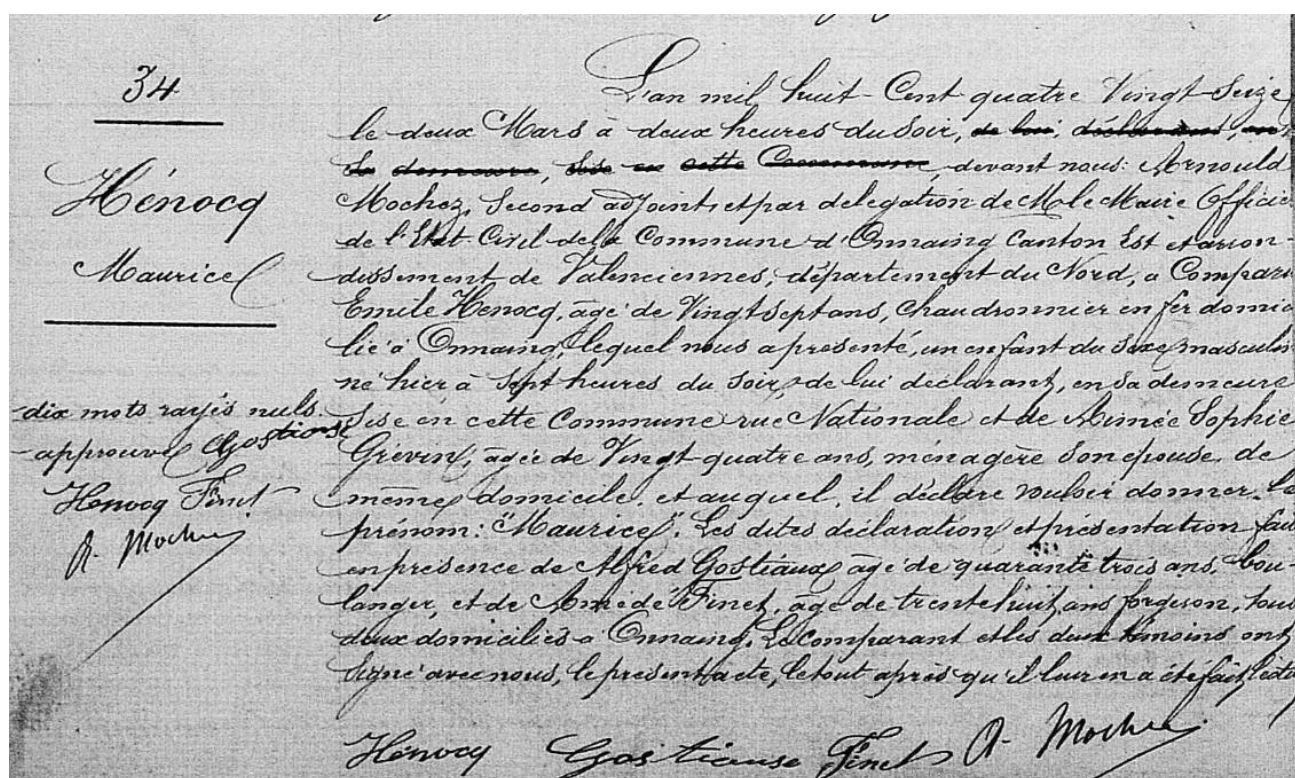 34
Hénocq
Maurice
dix mots rayés nuls
approuvé Gostiause
Henocq Finet
A. Mochez
L'an mil huit-Cent quatre Vingt-Seize
le deux Mars à deux heures du soir, de lui, déclarant, en
sa demeure, sise en cette Commune, devant nous: Arnould
Mochez, Second adjoint, et par délégation de M. le Maire Officie
de l'Etat-Civil de la Commune d'Onnaing Canton Est et arron-
dissement de Valenciennes, département du Nord, a Comparu
Emile Hénocq, âgé de Vingt sept ans, Chaudronnier en fer domici
lié à Onnaing, lequel nous a présenté, un enfant du sexe masculin
né hier à Sept heures du Soir, de lui déclarant, en sa demeure
Sise en cette Commune rue Nationale et de Aimée Sophie
Grévin, âgée de Vingt-quatre ans, ménagère son épouse, de
même domicile, et auquel, il déclare vouloir donner le
prénom: "Maurice". Les dites déclaration et présentation fait
en présence de Alfred Gostiaux âgé de quarante trois ans, bou-
langer, et de Amédé Finet, âgé de trente huit ans forgeron, tous
deux domiciliés à Onnaing. Le comparant et les deux témoins ont
Signé avec nous, le présent acte, le tout après qu'il leur en a été fait lectu
Hénocq Gostiause Finet A. Mochez